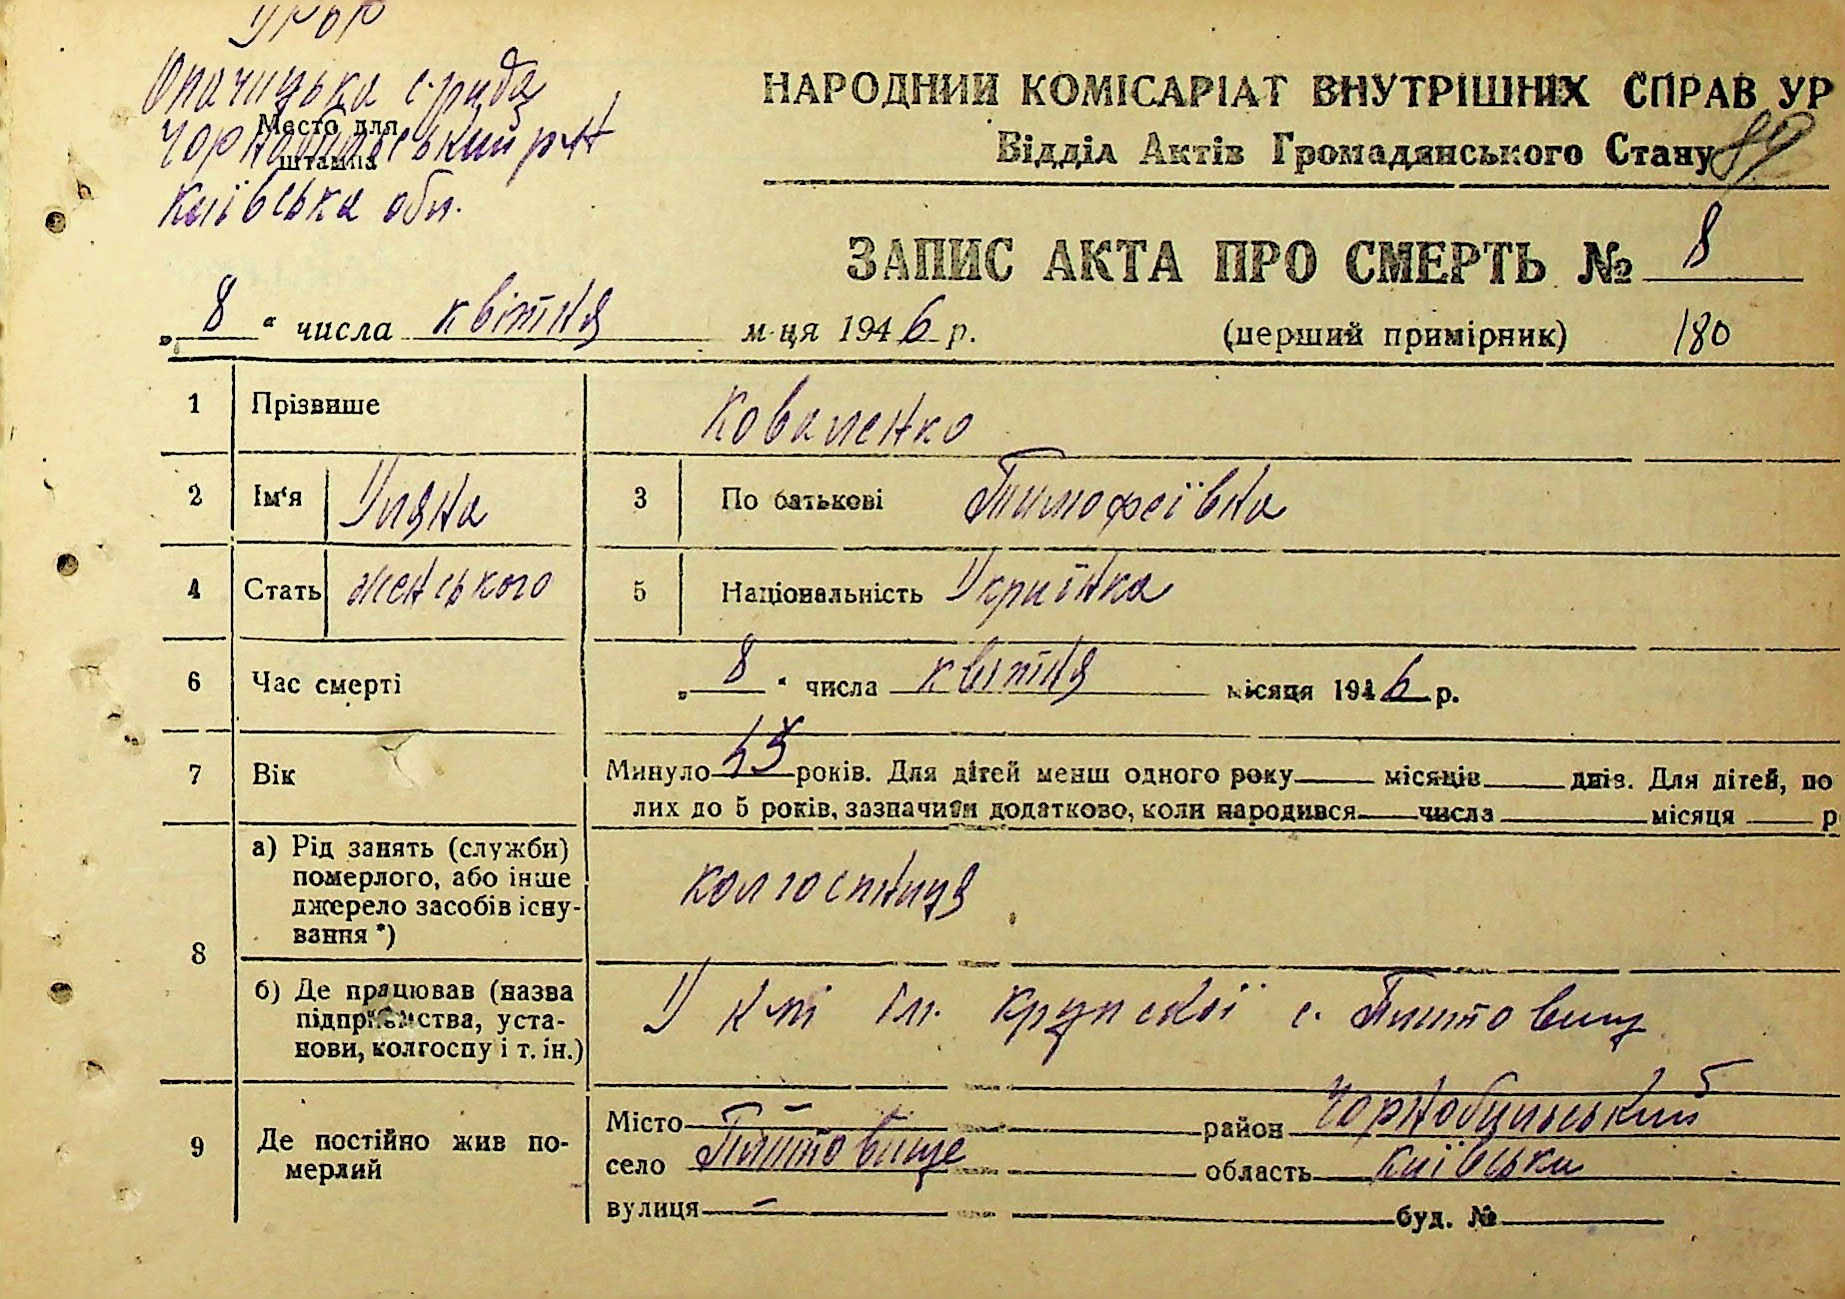 УРСР
Опачицька с·рада
Место для
Чорнобильський р-н
штампа
Київська обл.
НАРОДНИЙ КОМІСАРІАТ ВНУТРІШНІХ СПРАВ УР
Відділ Актів Громадянського Стану
89
ЗАПИС АКТА ПРО СМЕРТЬ № 8
„ 8 “ числа квітня м-ця 1946 р. (перший примірник) 180
1 Прізвище Коваленко
2 Ім‘я Уляна 3 По батькові Тимофеївна
4 Стать женського 5 Національність Українка
6 Час смерті „ 8 “ числа квітня місяця 1946 р.
7 Вік Минуло 45 років. Для дітей менш одного року місяців днів. Для дітей, по
лих до 5 років, зазначити додатково, коли народився числа місяця р
8 а) Рід занять (служби) померлого, або інше джерело засобів існу-вання *) колгоспниця
б) Де працював (назва підприємства, уста-нови, колгоспу і т. ін.) У к-пі ім. Крупскої с. Плютовищ
9 Де постійно жив по-мерлий Місто — район Чорнобильський
село Плютовище область Київська
вулиця — буд. №